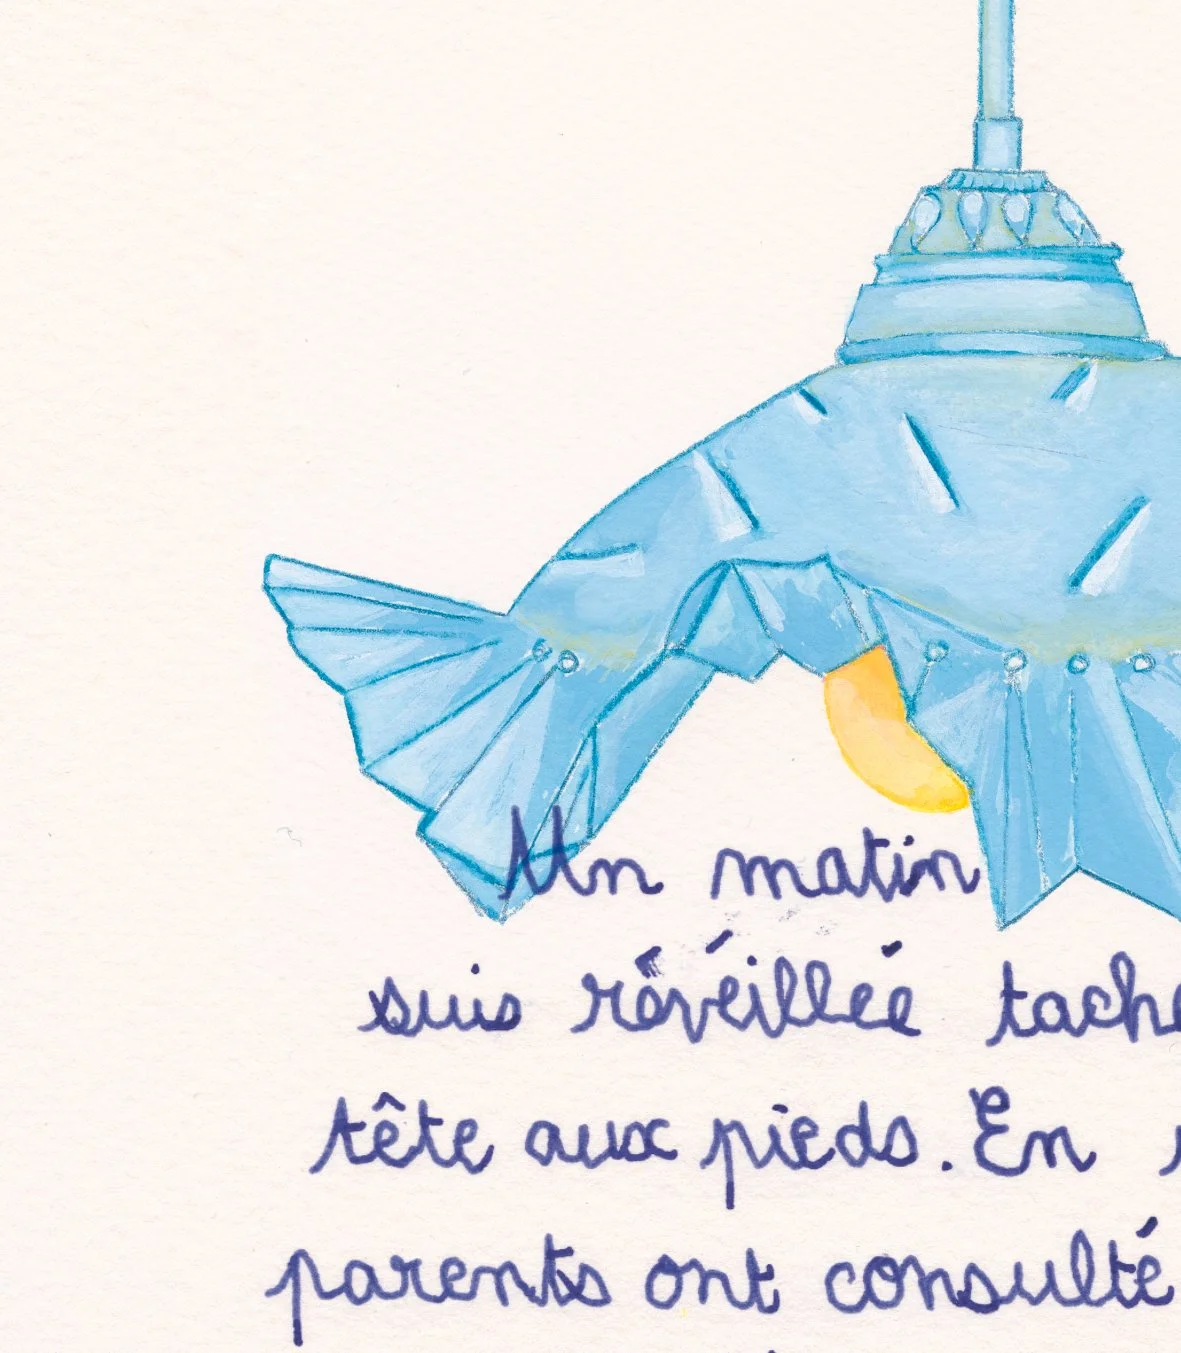 Un matin
suis réveillée tache
tête aux pieds. En
parents ont consulté